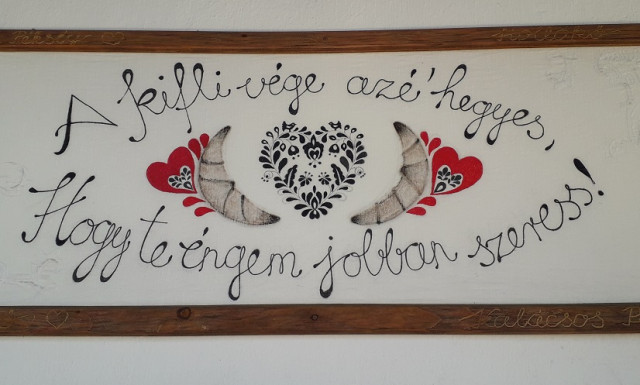 A kifli vége azé' hegyes,
Hogy te éngem jobban szeress!